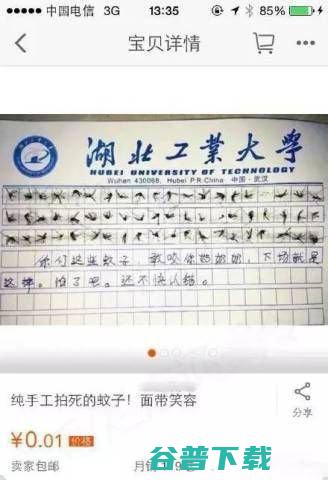 中国电信 3G 13:35 85%
宝贝详情
湖北工業大学
HUBEI UNIVERSITY OF TECHNOLOGY
Wuhan 430068, Hubei P.R.China 中国·武汉
你们这些蚊子,敢咬你奶奶,下场就是
这样。怕了吧。还不快认错。
纯手工拍死的蚊子!面带笑容
分享
¥0.01 价格
卖家包邮
谷普下载